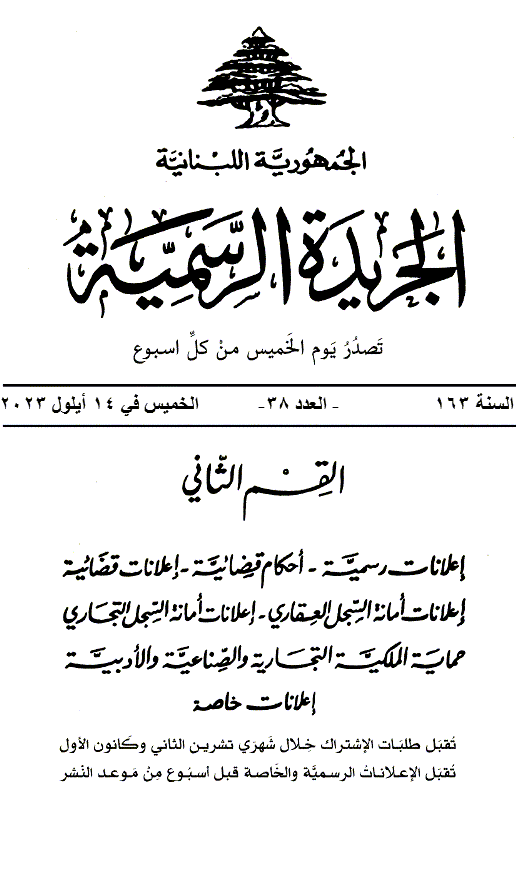 الجمهورية اللبنانية
الجريدة الرسمية
تصدر يوم الخميس من كل اسبوع
السنة ١٦٣ - العدد ٣٨- الخميس في ١٤ أيلول ٢٠٢٣
القسم الثاني
إعلانات رسمية - أحكام قضائية - إعلانات قضائية
إعلانات أمانة السجل العقاري - إعلانات أمانة السجل التجاري
حماية الملكية التجارية والصناعية والأدبية
إعلانات خاصة
تُقبَل طلبَات الإشتراك خِلال شَهرَي تشرين الثاني وكَانون الأول
تُقبَل الإعلاناتُ الرسميَّة والخَاصة قبل أسبُوع مِنْ مَوعد النَشر